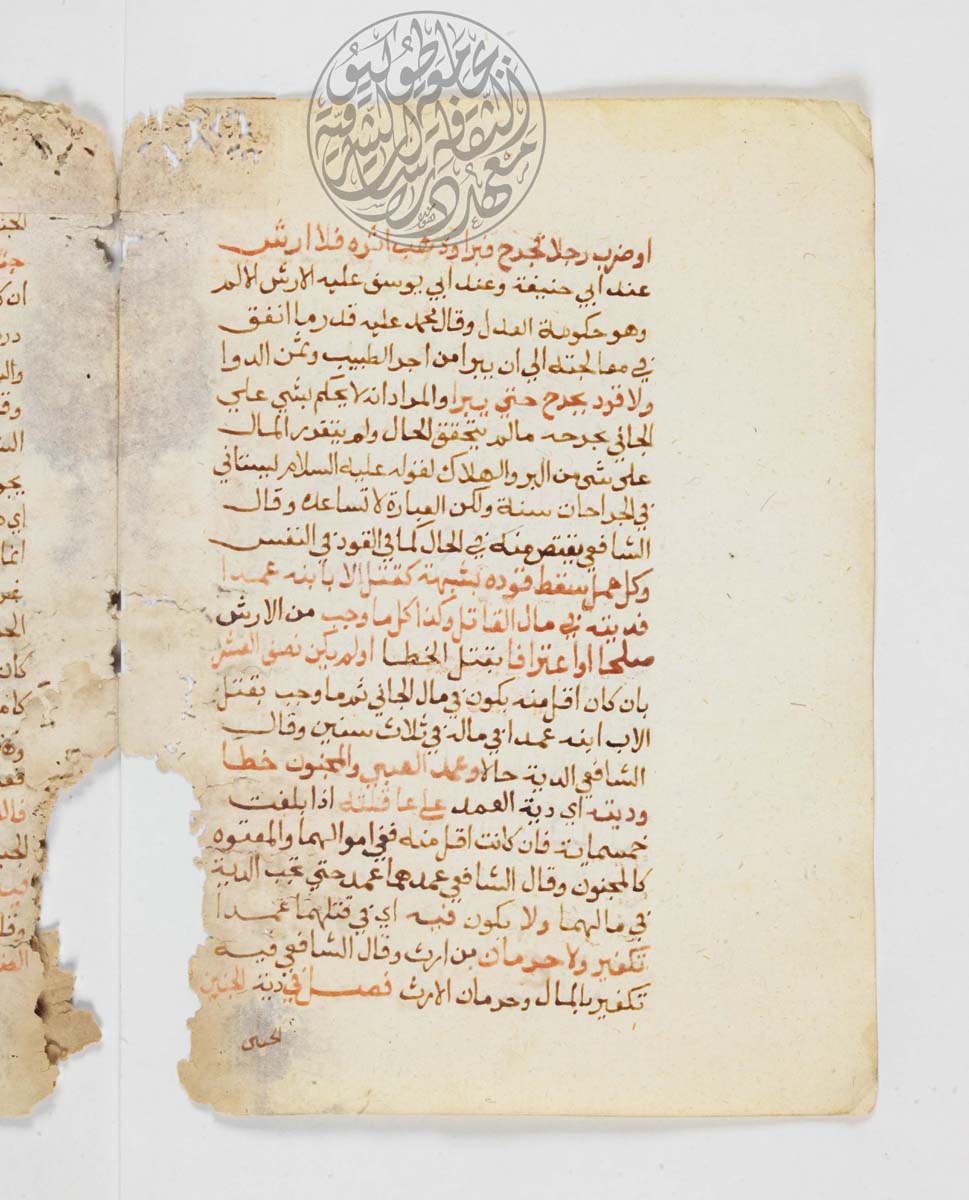 او ضرب رجلا فجرح فبرا وذهب اثره فلا ارش
عند ابي حنيفة وعند ابي يوسف عليه الارش الالم
وهو حكومة العدل وقال محمد عليه قدر ما انفق
في معالجته الي ان يبرا من اجر الطبيب وثمن الدوا
ولا قود بجرح حتي يبرا والمراد انه لا يحكم بشي علي
الجاني بجرحه مالم يتحقق الحال ولم يتقدر المال
علي شي من البر والهلاك لقوله عليه السلام ليستاني
في الجراحات سنة ولكن العبارة لا تساعده وقال
الشافعي يقتص منه في الحال كما في القود في النفس
وكل عمد سقط قوده بشبهة كقتل الاب ابنه عمدا
فديته في مال القاتل وكذا كل ما وجب من الارش
صلحا او اعترافا بقتل الخطا او لم يكن نصف العشر
بان كان اقل منه يكون في مال الجاني ثم ما وجب بقتل
الاب ابنه عمدا في ماله في ثلاث سنين وقال
الشافعي الدية حالا وعمد الصبي والمجنون خطا
وديته اي دية العمد علي عاقلته اذا بلغت
خمسماية فان كانت اقل منه ففي اموالهما والمعتوه
كالمجنون وقال الشافعي عمدهما عمد حتي تجب الدية
في مالهما ولا يكون فيه اي في قتلهما عمدا
تكفير ولا حرمان من ارث وقال الشافعي فيه
تكفير بالمال وحرمان الارث فصل في دية الجنين